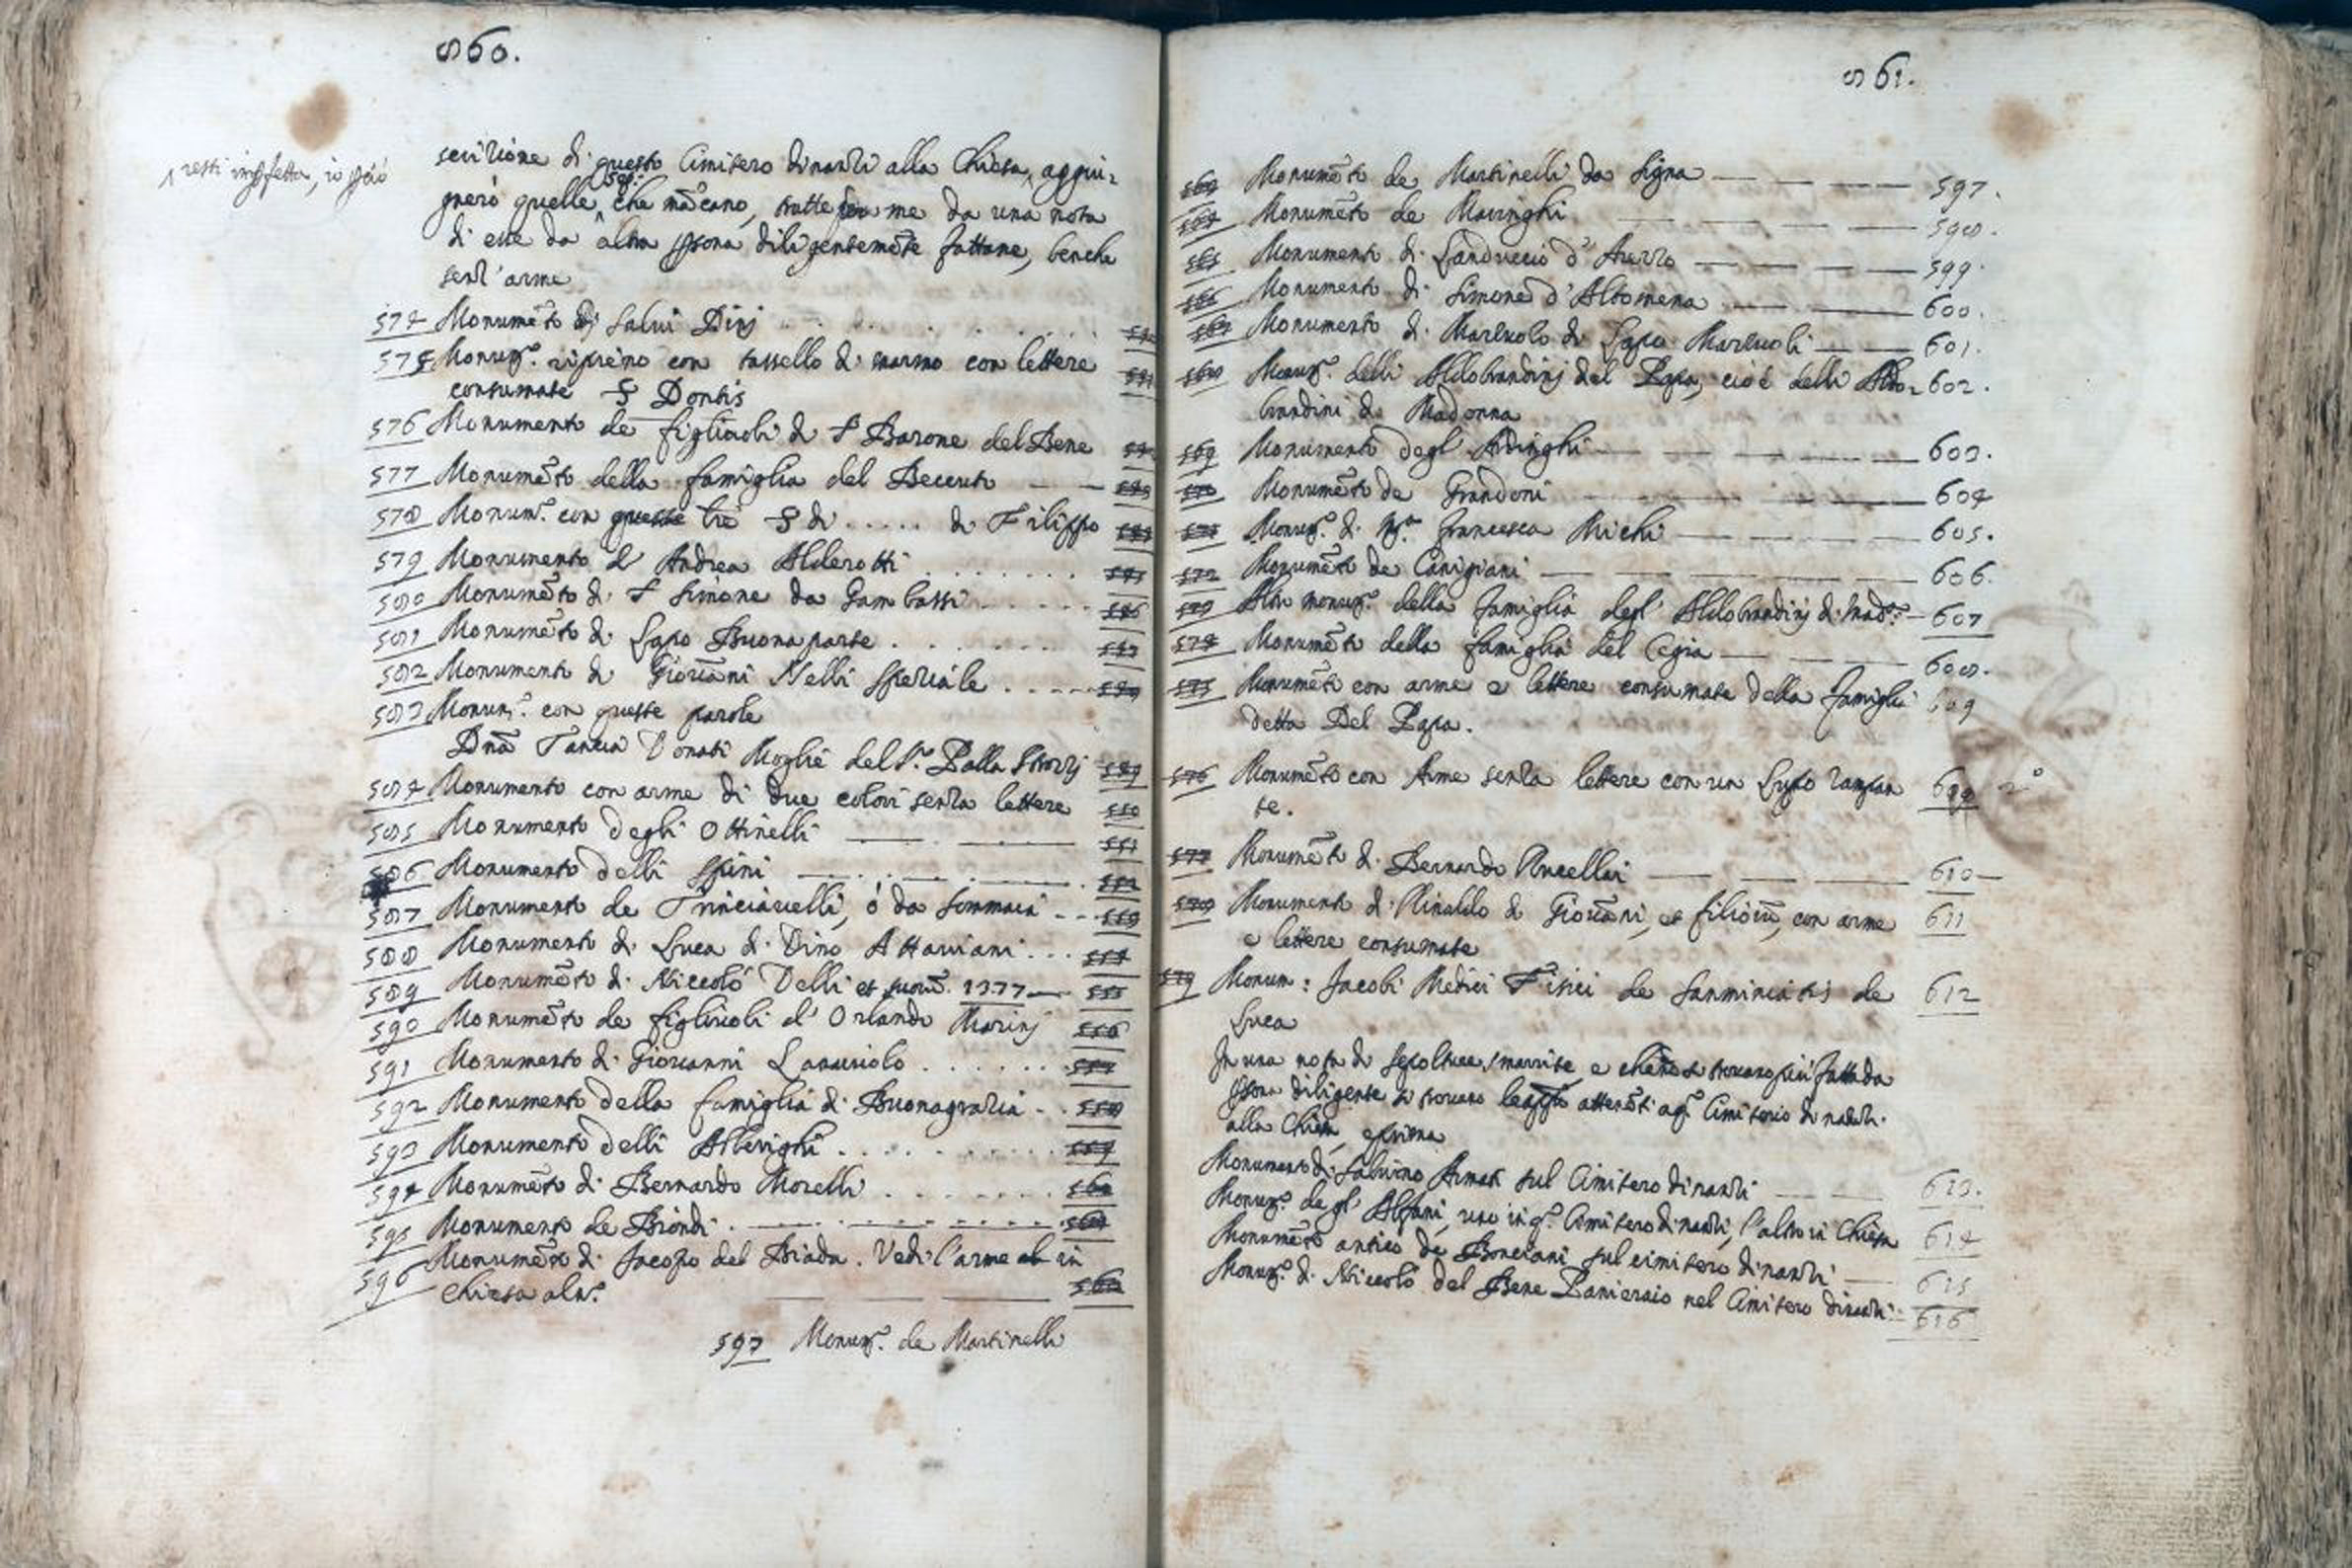 860.
resti imp̃fetta, io p̃ciò
scrizione di questo Cimitero dinanzi alla Chiesa, aggiu-
gnerò quelle sep: che mãcano, tratte da me da una nota
di esse da altra p̃sona diligentemẽte fattane, benche
senz'arme
574 Monumẽto di Salvi Dinj
575 Monum.º ripieno con tassello di marmo con lettere
consumate S Dontis
576 Monumento de figliuoli di S Barone del Bene
577 Monumẽto della famiglia del Beccuto
578 Monum.º con queste tre S di ..... di Filippo
579 Monumento d'Andrea Alderotti
580 Monumẽto di S Simone da Gambassi
581 Monumẽto di Lapo Buonaparte
582 Monumento di Giovãni Nelli Speziale
583 Monum.º con queste parole
Dñã Tancia Donati Moglie del S.r Palla Strozzj
584 Monumento con arme di due colori senza lettere
585 Monumento degli Ottinelli
586 Monumento delli Spini
587 Monumento de Trinciavelli, ò da Sommaia
588 Monumento di Luca di Dino Attaviani
589 Monumẽto di Niccolò Delli et suorũ. 1377
590 Monumẽto de figliuoli d'Orlando Marinj
591 Monumento di Giovanni Lanuiolo
592 Monumento della famiglia di Buonagrazia
593 Monumento delli Alberighi
594 Monumẽto di Bernardo Morelli
595 Monumento de Biondi
596 Monumẽto di Jacopo del Biada. Vedi l'arme in
Chiesa al n.º
597 Monum.º de Martinelli
861.
Monumẽto de Martinelli da Signa 597.
Monumẽto de Maringhi 598.
Monumento di Landuccio d'Aurzo 599.
Monumento di Simone d'Altomena 600.
Monumento di Marzuolo di Lapo Marzuoli 601.
Monum.º delli Aldobrandinj del Papa, cioè delli Aldo- 602.
brandini di Madonna
Monumento degl'Adinghi 603.
Monumẽto de Grandoni 604
Monum.º di M.ª Francesca Michi 605.
Monumẽto de Canigiani 606.
Altro monum.º della famiglia degl'Aldobrandinj di Mad.ª 607
Monumẽto della famiglia del Cegia 608.
Monumẽto con arme e lettere consumate della famiglia 609
detta Del Papa.
Monumẽto con Arme senza lettere con un Lupo rampan 609 2º
te.
Monumẽto di Bernardo Rucellai 610
Monumento di Rinaldo di Giovãni, et filiorũ, con arme 611
e lettere consumate
Monum: Jacobi Medici Fisici de Sanminiatis de 612
Luca
In una nota di sepolture smarrite, e che nõ si trovano più fatta da
p̃sona diligente si trovano le appo attenẽti a q.º Cimiterio dinãzi
alla Chiesa, e prima
Monumento di Salvino Armati sul Cimitero dinanzi 613.
Monum.º degl'Alfani, uno in q.º Cimitero dinanzi, l'altro in Chiesa 614
Monumẽto antico de Bonciani sul cimitero dinanzi 615
Monum.º di Niccolò del Bene Panieraio nel Cimitero dinanzi 616